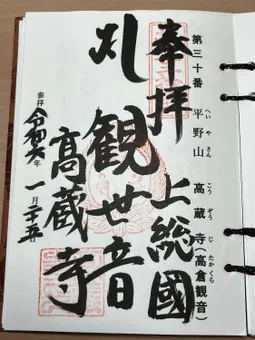 第三十番 平野山 高蔵寺(高倉観音)
へいやさん こうぞうじ たかくら
奉拝 上総國
札 観世音
高蔵寺
参拝 令和六年 一月二十五